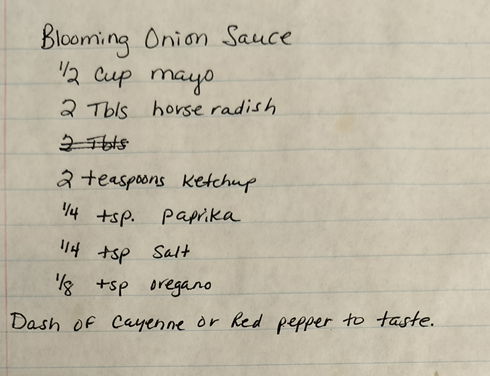 Blooming Onion Sauce
1/2 cup mayo
2 Tbls horse radish
2 Tbls
2 teaspoons ketchup
1/4 tsp. paprika
1/4 tsp salt
1/8 tsp oregano
Dash of Cayenne or Red pepper to taste.